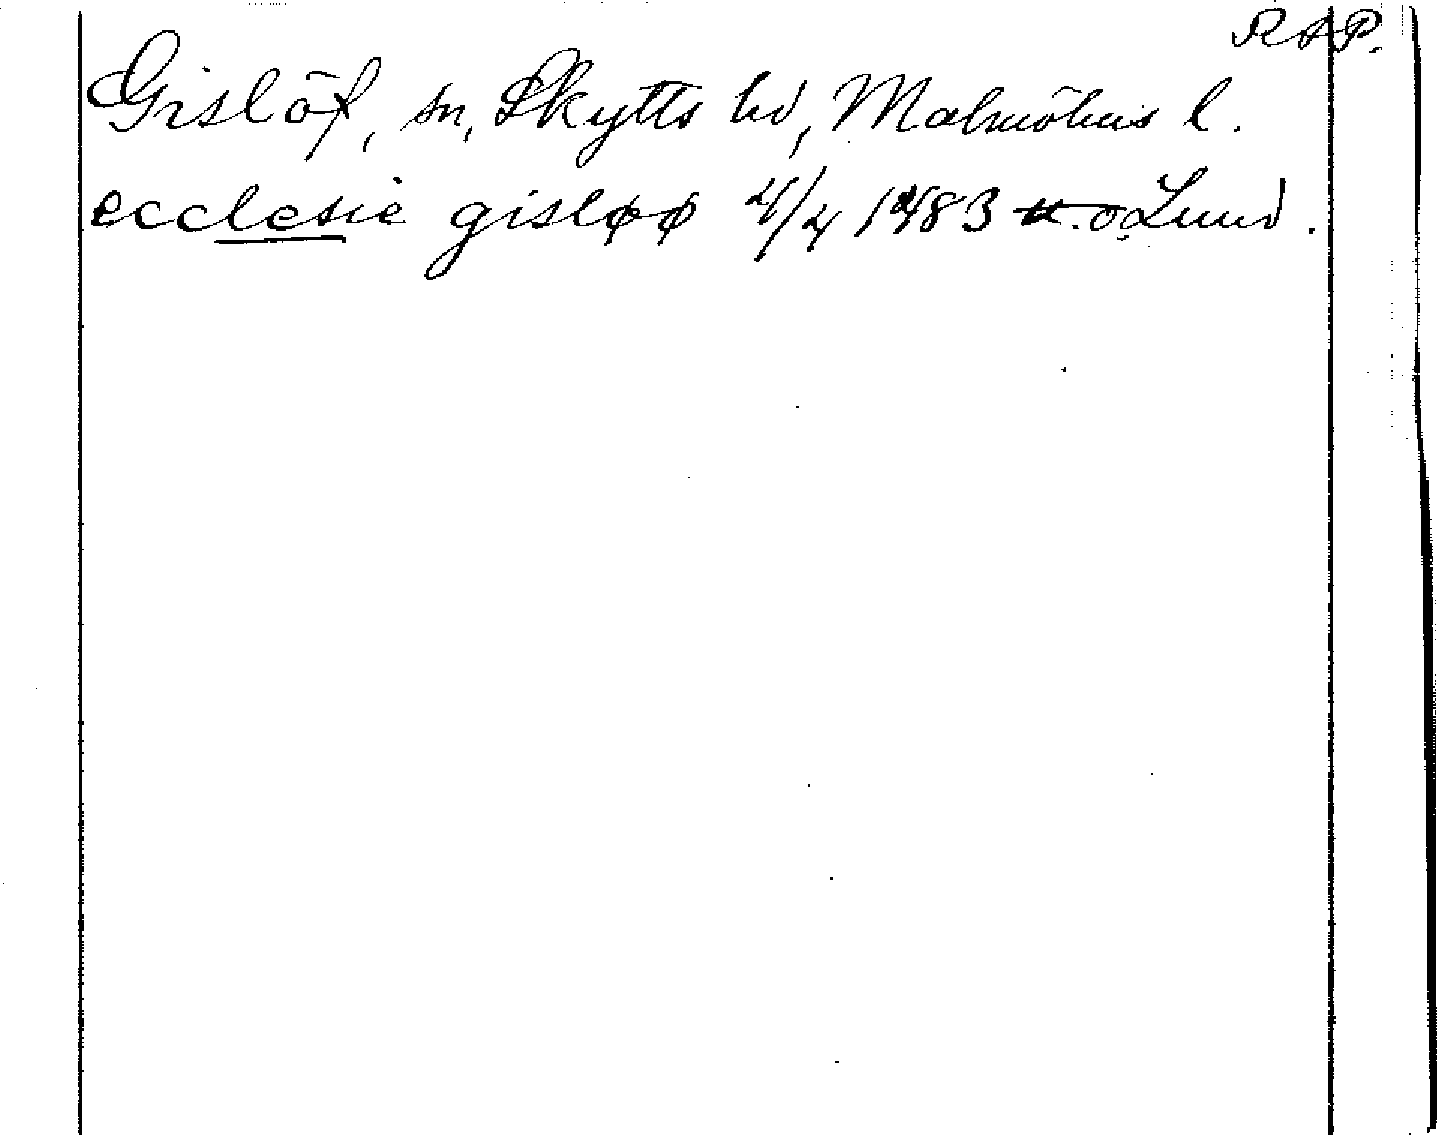 RAP.
Gislöf, sn, Skytts hd, Malmöhus l.
ecclesie gisløø 4/4 1483 u. o. Lund.